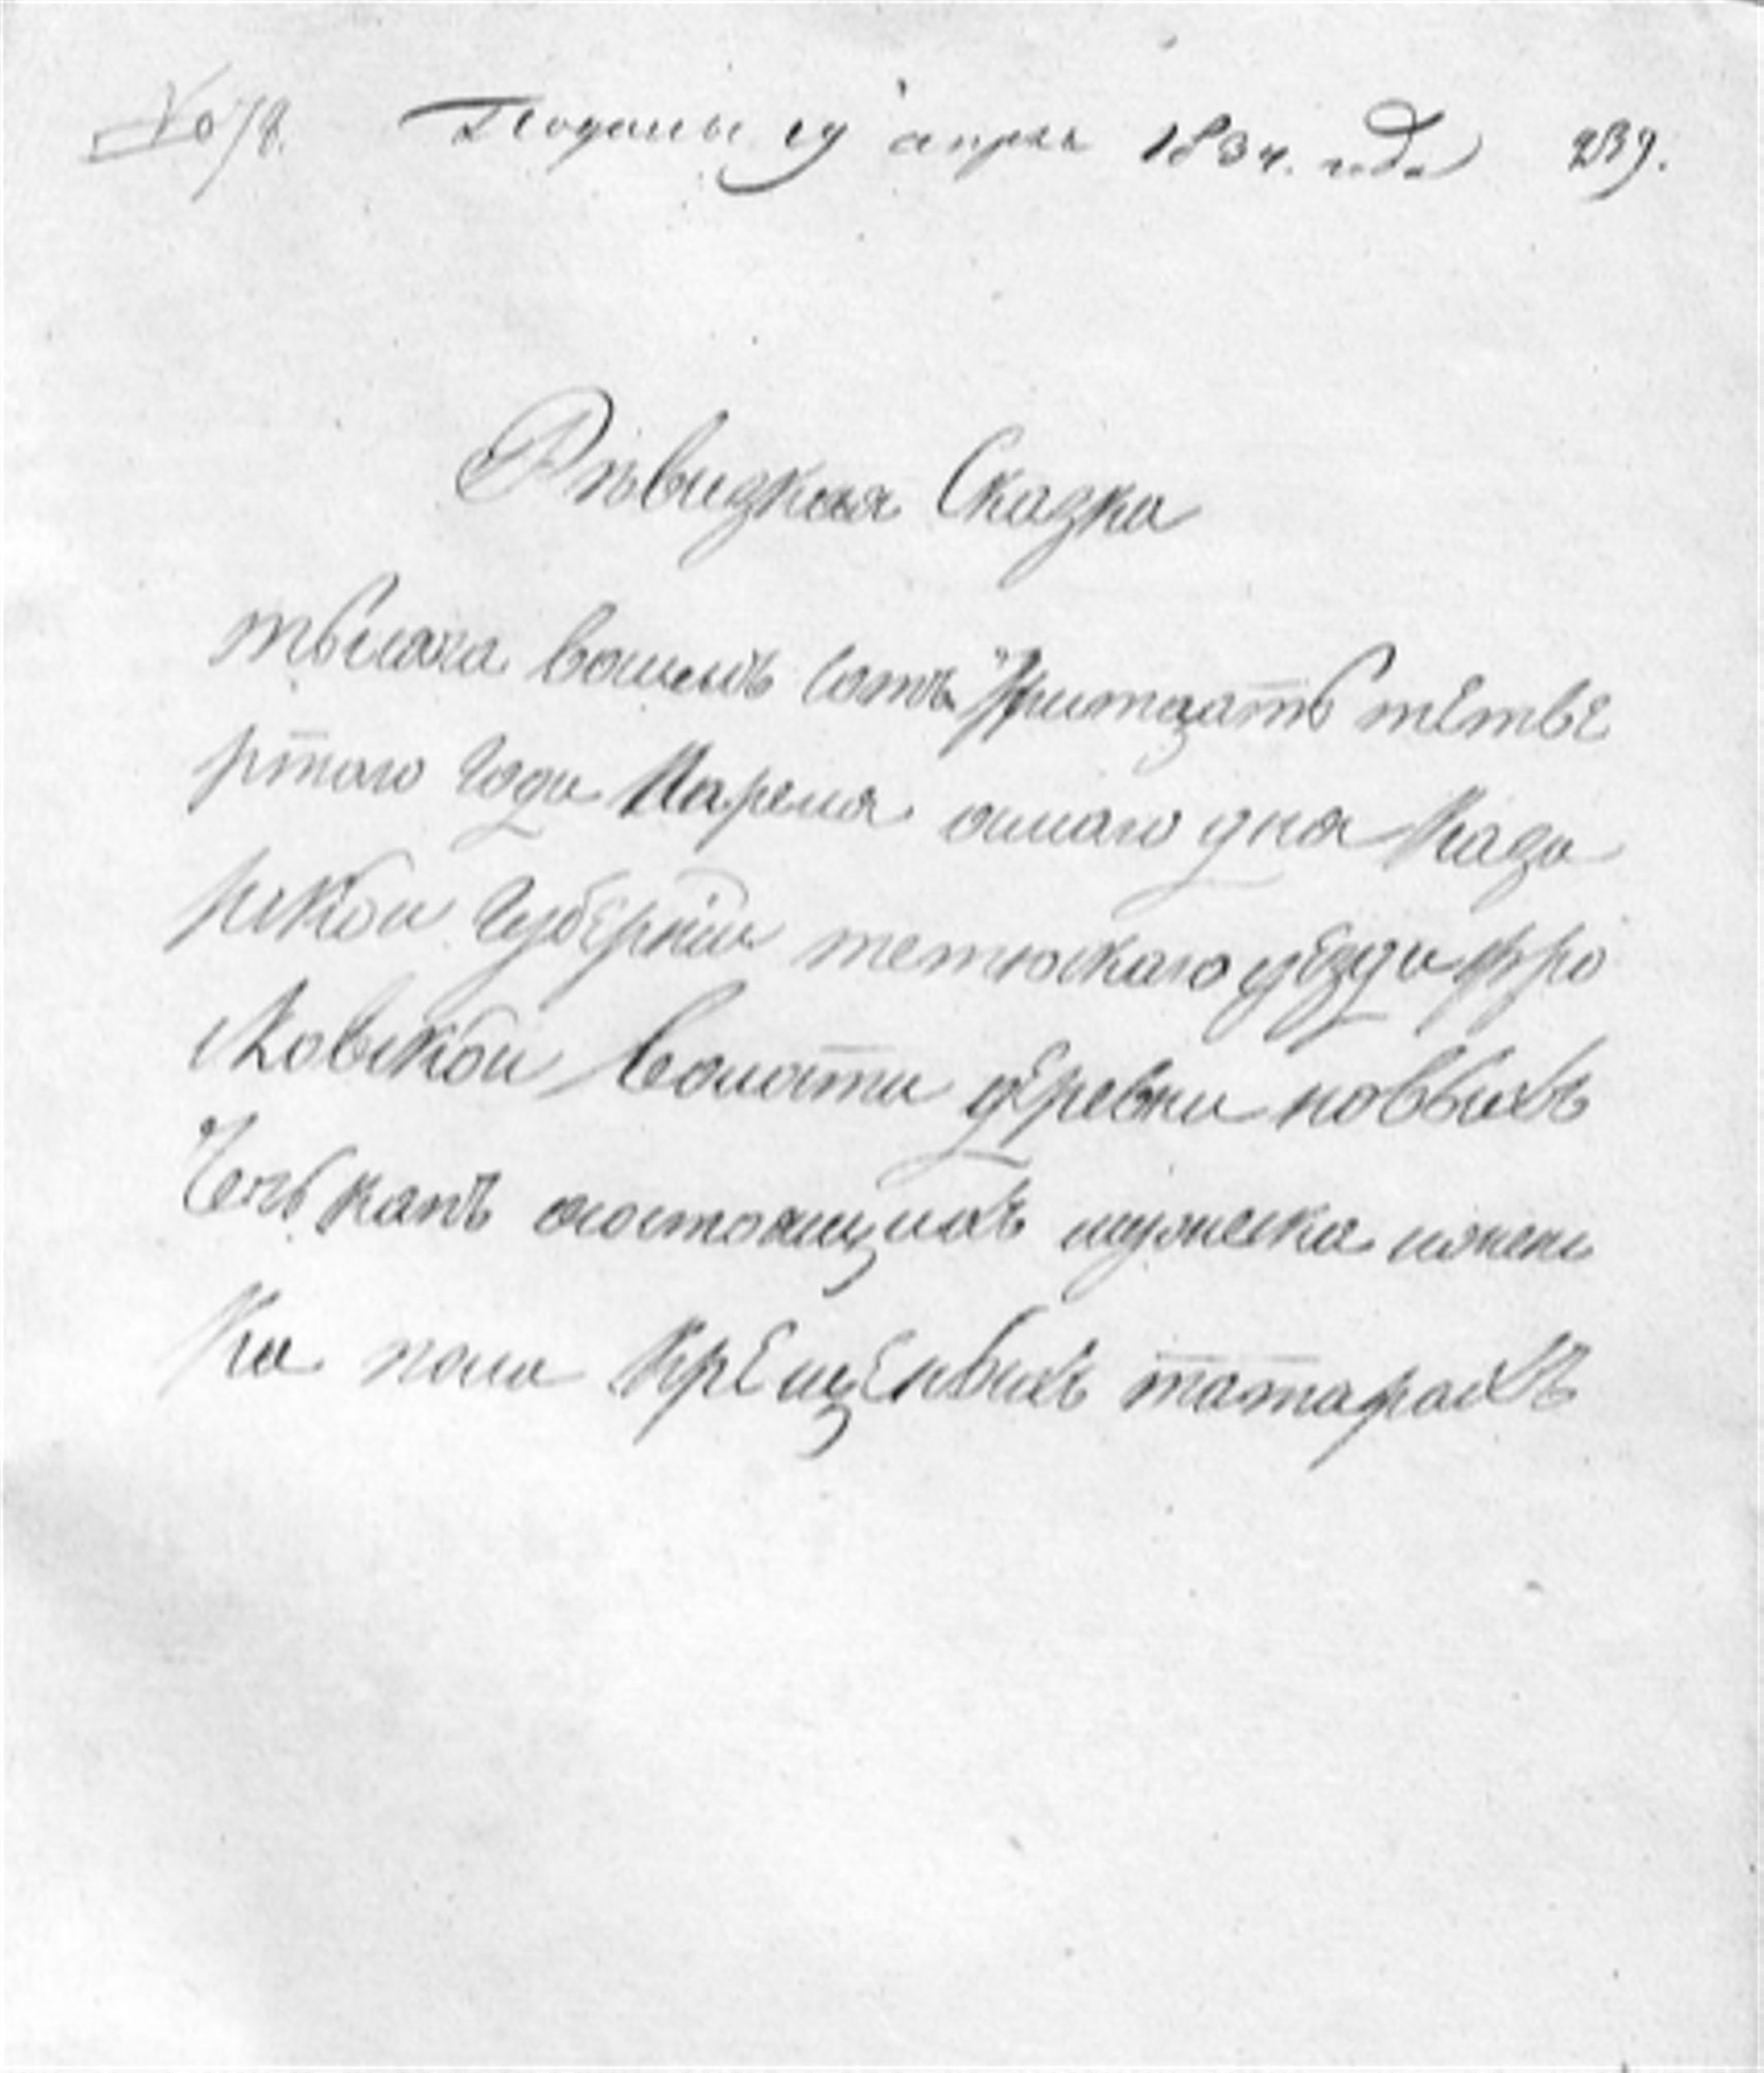 № 78. Поданы 19 апреля 1834. года 239.
Рѣвизкая Сказка
тысяча восемъ сотъ тритцать четве
ртаго года Апреля осмаго дня Каза
нской губерніи тетюскаго уезда фро
ловской волости деревни новыхъ
Чечкапъ состоящихъ мужеска иженс
ка пола крещеныхъ татарахъ